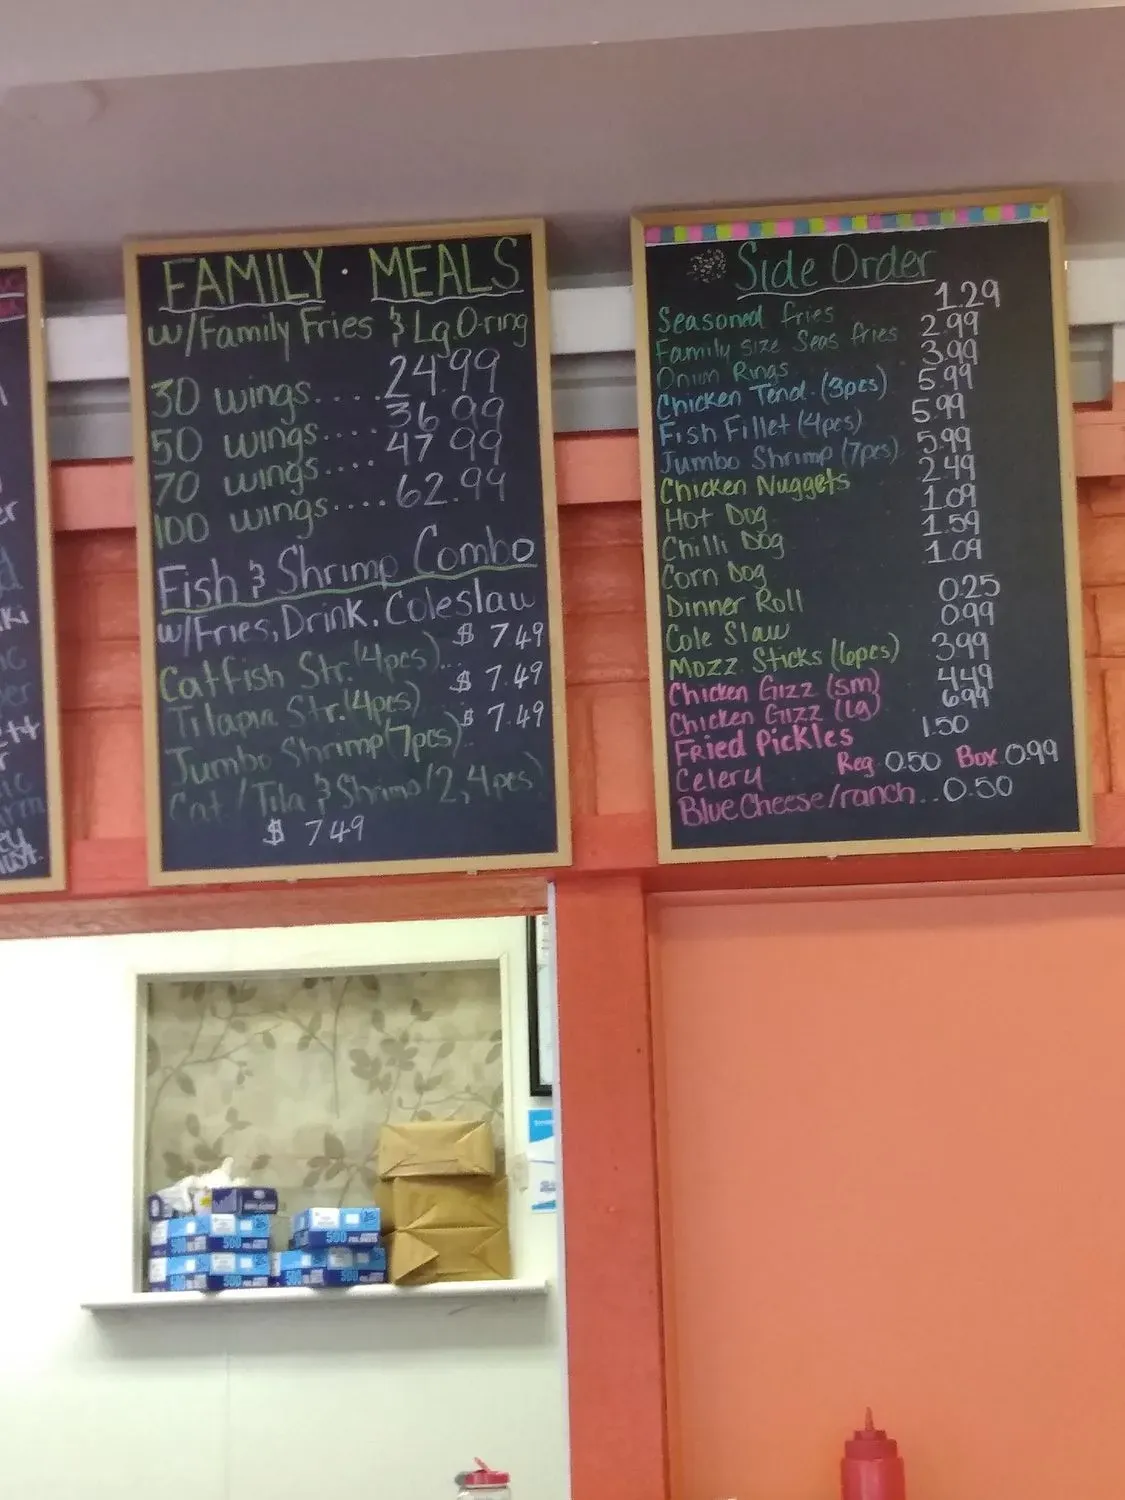 FAMILY · MEALS
w/Family Fries & Lg. O-ring
30 wings.....24.99
50 wings.....36.99
70 wings.....47.99
100 wings.....62.99
Fish & Shrimp Combo
w/Fries, Drink, Coleslaw
Catfish Str. (4pcs)... $ 7.49
Tilapia Str. (4pcs)... $ 7.49
Jumbo Shrimp (7pcs).. $ 7.49
Cat / Tila & Shrimp (2,4pcs)
$ 7.49
Side Order
Seasoned fries 1.29
Family size Seas fries 2.99
Onion Rings 3.99
Chicken Tend. (3pcs) 5.99
Fish Fillet (4pcs) 5.99
Jumbo Shrimp (7pcs) 5.99
Chicken Nuggets 2.49
Hot Dog 1.09
Chilli Dog 1.59
Corn Dog 1.09
Dinner Roll 0.25
Cole Slaw 0.99
Mozz. Sticks (6pcs) 3.99
Chicken Gizz (sm) 4.49
Chicken Gizz (Lg) 6.99
Fried Pickles 1.50
Celery Reg. 0.50 Box 0.99
Blue Cheese/ranch...0.50
500
500
500
500